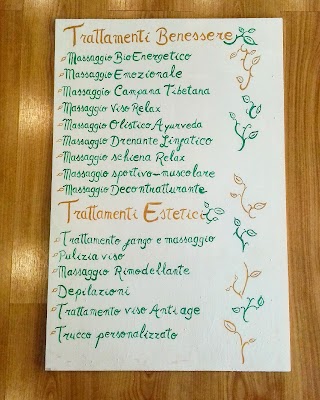 Trattamenti Benessere
Massaggio BioEnergetico
Massaggio Emozionale
Massaggio Campana Tibetana
Massaggio Viso Relax
Massaggio Olistico Ayurveda
Massaggio Drenante Linfatico
Massaggio schiena Relax
Massaggio sportivo-muscolare
Massaggio Decontratturante
Trattamenti Estetici
Trattamento fango e massaggio
Pulizia viso
Massaggio Rimodellante
Depilazioni
Trattamento viso Anti age
Trucco personalizzato